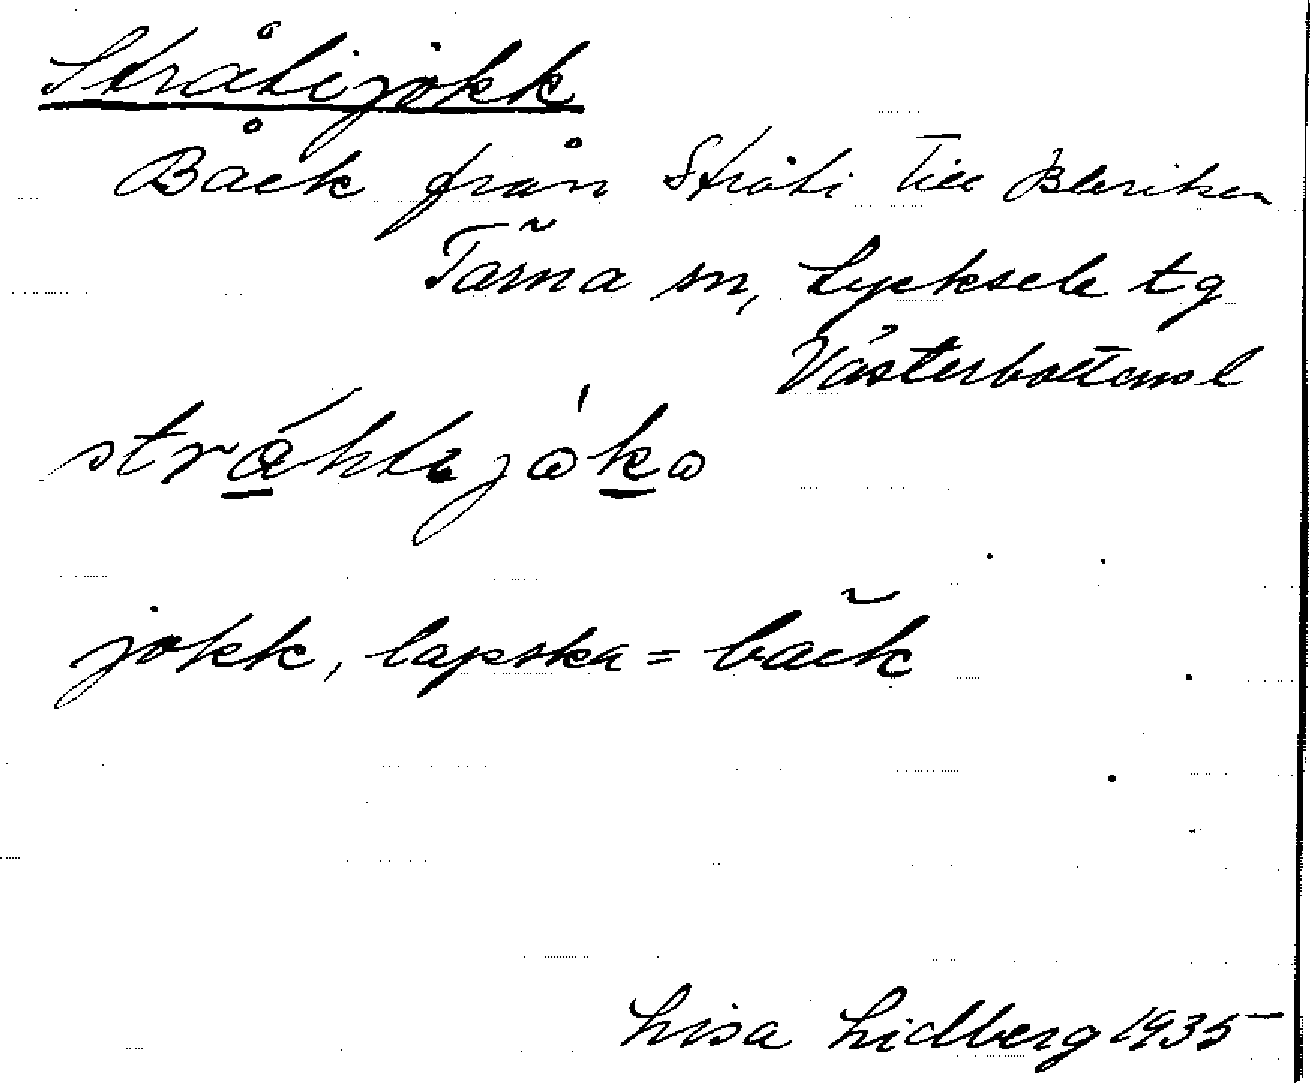 Stråtijokk
Bäck från Stråti till Bleriken
Tärna sn, Lycksele tg
Västerbottens l
jokk, lapska = bäck
Lisa Lidberg 1935